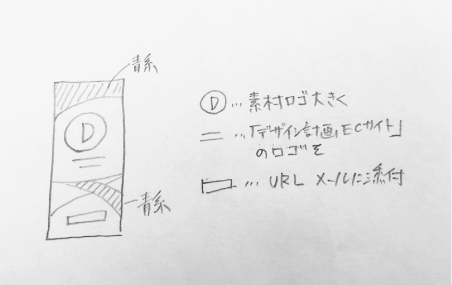 青系
D
青系
D … 素材ロゴ大きく
= … 「デザイン計画, ECサイト」
のロゴを
… URL メールに添付